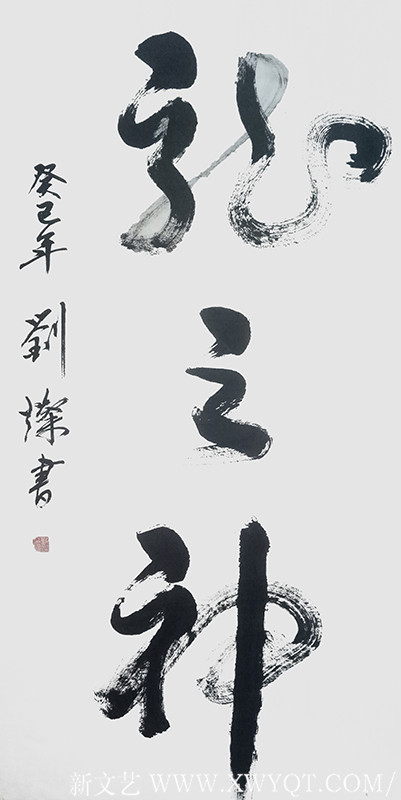 龍之神
癸巳年 劉燦書
新文艺 WWW.XWYQT.COM/